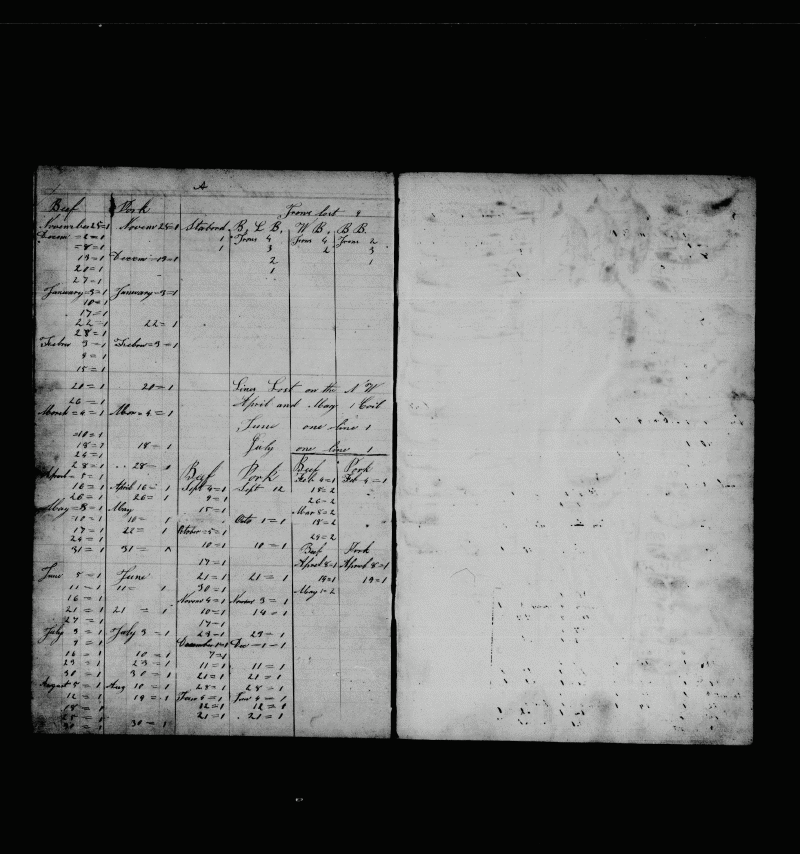 A
Beef Pork Irons lost 9
November 28=1 Novem 28=1 Starbord B, L B, W B, B B.
Decem =2=1 1 Irons 4 Irons 4 Irons 2
=8=1 1 3 2 3
13=1 Decem=13=1 2 1
20=1 1
27=1
January=3=1 January=3=1
10=1
17=1
22=1 22=1
28=1
3=1 =3=1
9=1
15=1
20=1 20=1 Lines Lost on the N W
26=1 April and May 1 Coil
March=4=1 Mar=4=1
June one line 1
=10=1
18=1 18=1 July one line 1
24=1
28=1 28= Beef Pork Beef Pork
April=5=1 Sept 4=1 Sept 12 Feb 4=1 Feb 4=1
16=1 April 16=1 9=1 18=2
26=1 26=1 15=1 26=2
May=8=1 May Mar 8=2
10=1 10=1 Octo 1=1 18=2
17=1 22=1 October=5=1
24=1 29=2
31=1 31= 10=1 10=1 Beef Pork
17=1 April 8=1 April 8=1
June 5=1 June 21=1 21=1 19=1 19=1
11=1 11= 1 30=1 May 1=2
16=1 Novem 4=1 Novem 3=1
21=1 21=1 10=1 14=1
27=1 17=1
July 3=1 July 3=1 29=1 29=1
9=1 December 1=1 Dec=1=1
16=1 10=1 7=1
23=1 23=1 11=1 11=1
30=1 30=1 21=1 21=1
August 5=1 Aug 10=1 28=1 28=1
12=1 19=1 4=1 4=1
18=1 12=1 12=1
25=1 21=1 21=1
30=1 30=1